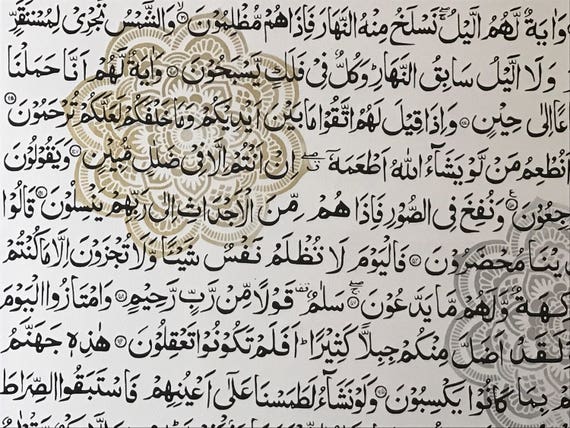 وَاٰيَةٌ لَّهُمُ الَّيْلُ ۖۚ نَسْلَخُ مِنْهُ النَّهَارَ فَاِذَا هُمْ مُّظْلِمُوْنَ ۙ وَالشَّمْسُ تَجْرِيْ لِمُسْتَقَرٍّ
وَلَا الَّيْلُ سَابِقُ النَّهَارِ ؕ وَكُلٌّ فِيْ فَلَكٍ يَّسْبَحُوْنَ وَاٰيَةٌ لَّهُمْ اَنَّا حَمَلْنَا
اِلٰى حِيْنٍ وَاِذَا قِيْلَ لَهُمُ اتَّقُوْا مَا بَيْنَ اَيْدِيْكُمْ وَمَا خَلْفَكُمْ لَعَلَّكُمْ تُرْحَمُوْنَ
اَنُطْعِمُ مَنْ لَّوْ يَشَآءُ اللّٰهُ اَطْعَمَهٗۤ اِنْ اَنْتُمْ اِلَّا فِيْ ضَلٰلٍ مُّبِيْنٍ وَيَقُوْلُوْنَ
وَنُفِخَ فِي الصُّوْرِ فَاِذَا هُمْ مِّنَ الْاَجْدَاثِ اِلٰى رَبِّهِمْ يَنْسِلُوْنَ قَالُوْا
مُحْضَرُوْنَ فَالْيَوْمَ لَا تُظْلَمُ نَفْسٌ شَيْـًٔا وَّلَا تُجْزَوْنَ اِلَّا مَا كُنْتُمْ
وَّلَهُمْ مَّا يَدَّعُوْنَ سَلٰمٌ ۟ قَوْلًا مِّنْ رَّبٍّ رَّحِيْمٍ وَامْتَازُوا الْيَوْمَ
لَقَدْ اَضَلَّ مِنْكُمْ جِبِلًّا كَثِيْرًا ؕ اَفَلَمْ تَكُوْنُوْا تَعْقِلُوْنَ هٰذِهٖ جَهَنَّمُ
بِمَا كَانُوْا يَكْسِبُوْنَ وَلَوْ نَشَآءُ لَطَمَسْنَا عَلٰۤى اَعْيُنِهِمْ فَاسْتَبَقُوا الصِّرَاطَ